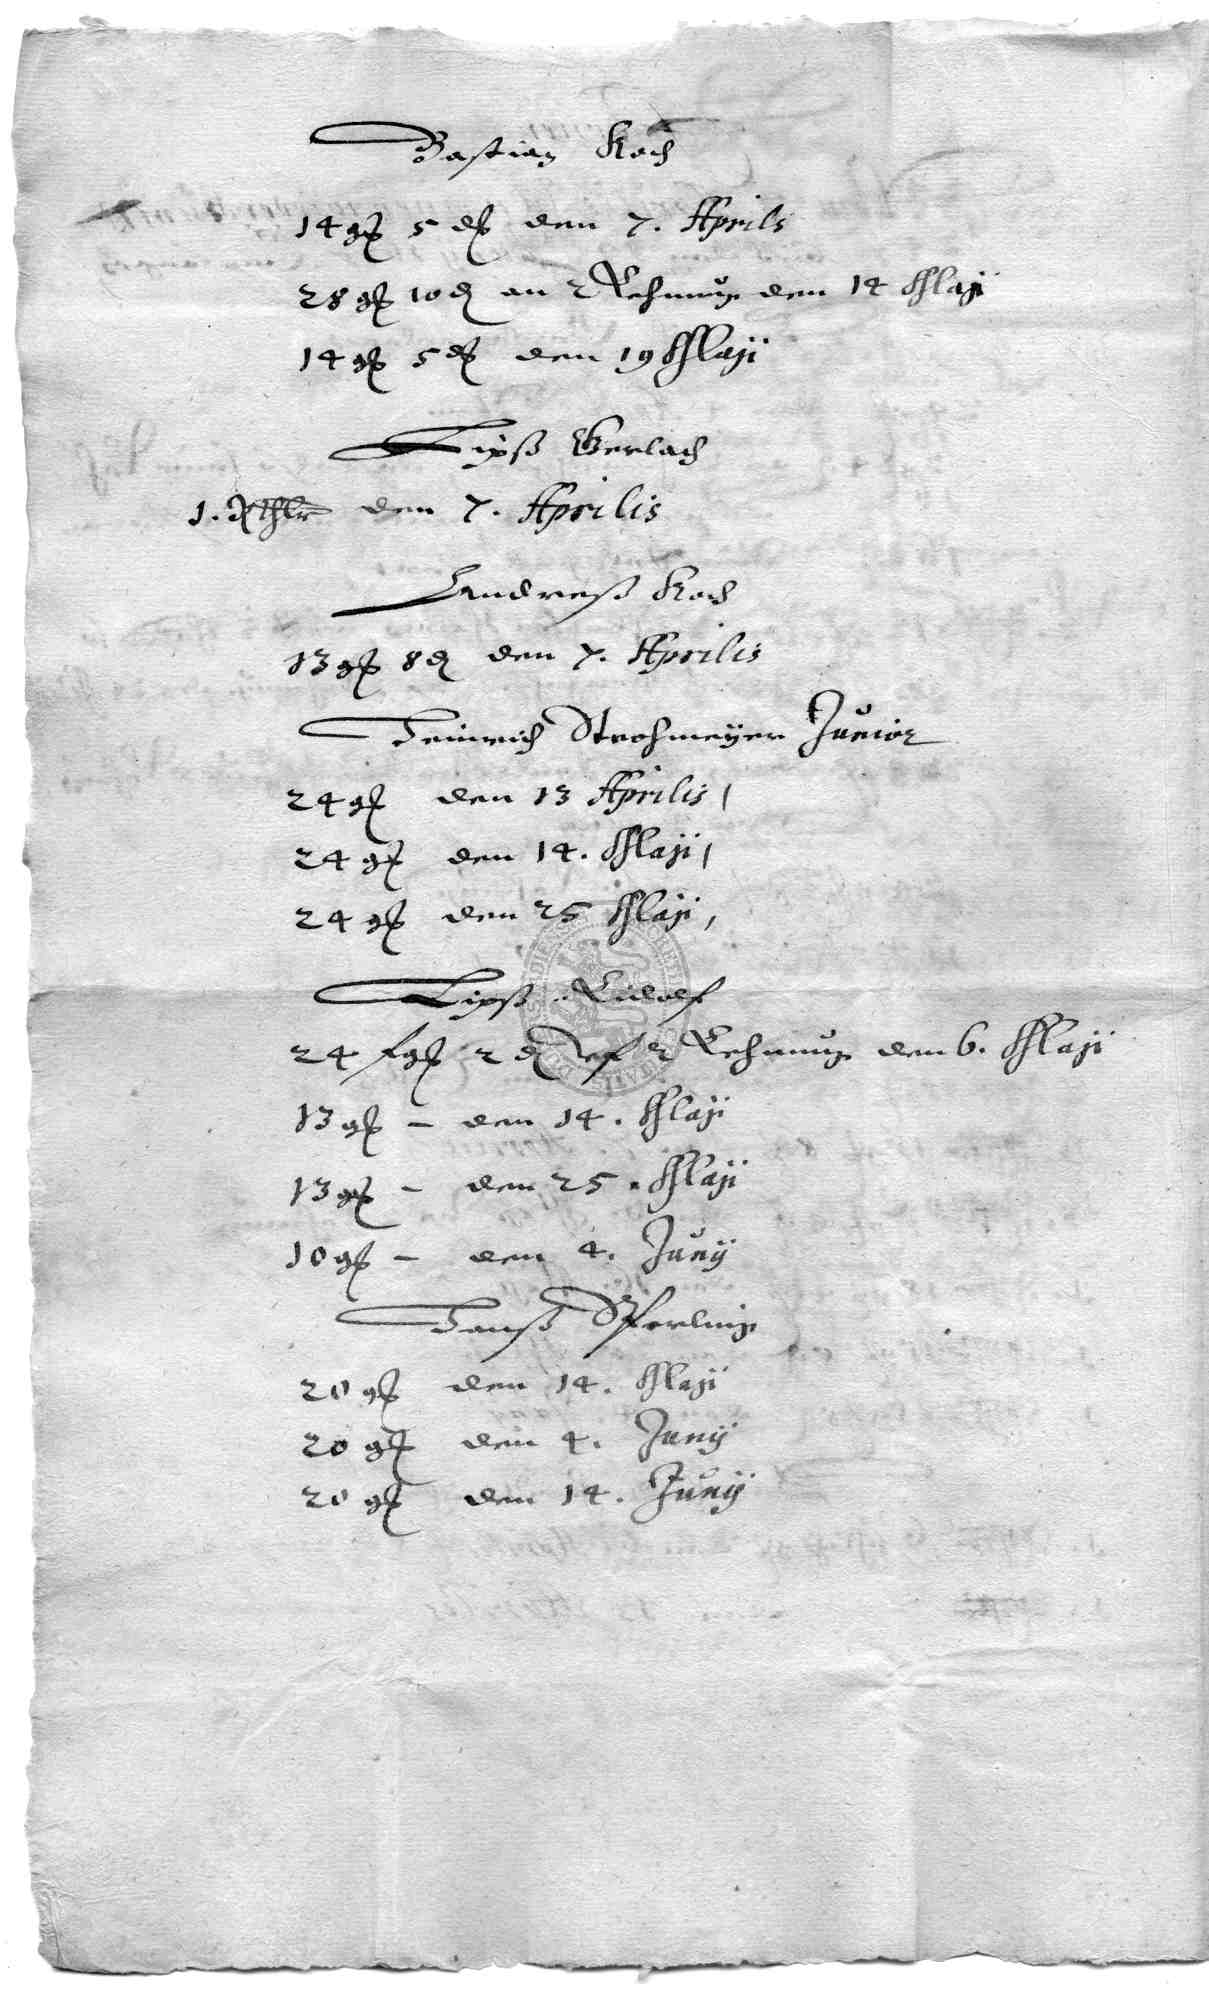 Bastian Koch
14 gl 5 d den 7. Aprils
28 gl 10 d an 2 Rechnung den 14 Maji
14 gl 5 d den 19 Maji
Lipß Gerlach
1. Rthlr den 7. Aprilis
Andreß Koch
13 gl 8 d den 7. Aprilis
Heinrich Strohmeyer Junior
24 gl den 13 Aprilis,
24 gl den 14. Maji,
24 gl den 25 Maji,
Lipß Rudolf
24 gl 2 d uf 2 Rechnung den 6. Maji
13 gl – den 14. Maji
13 gl – den 25. Maji
10 gl – den 4. Junij
Hanß Sperling
20 gl den 14. Maji
20 gl den 4. Junij
20 gl den 14. Junij